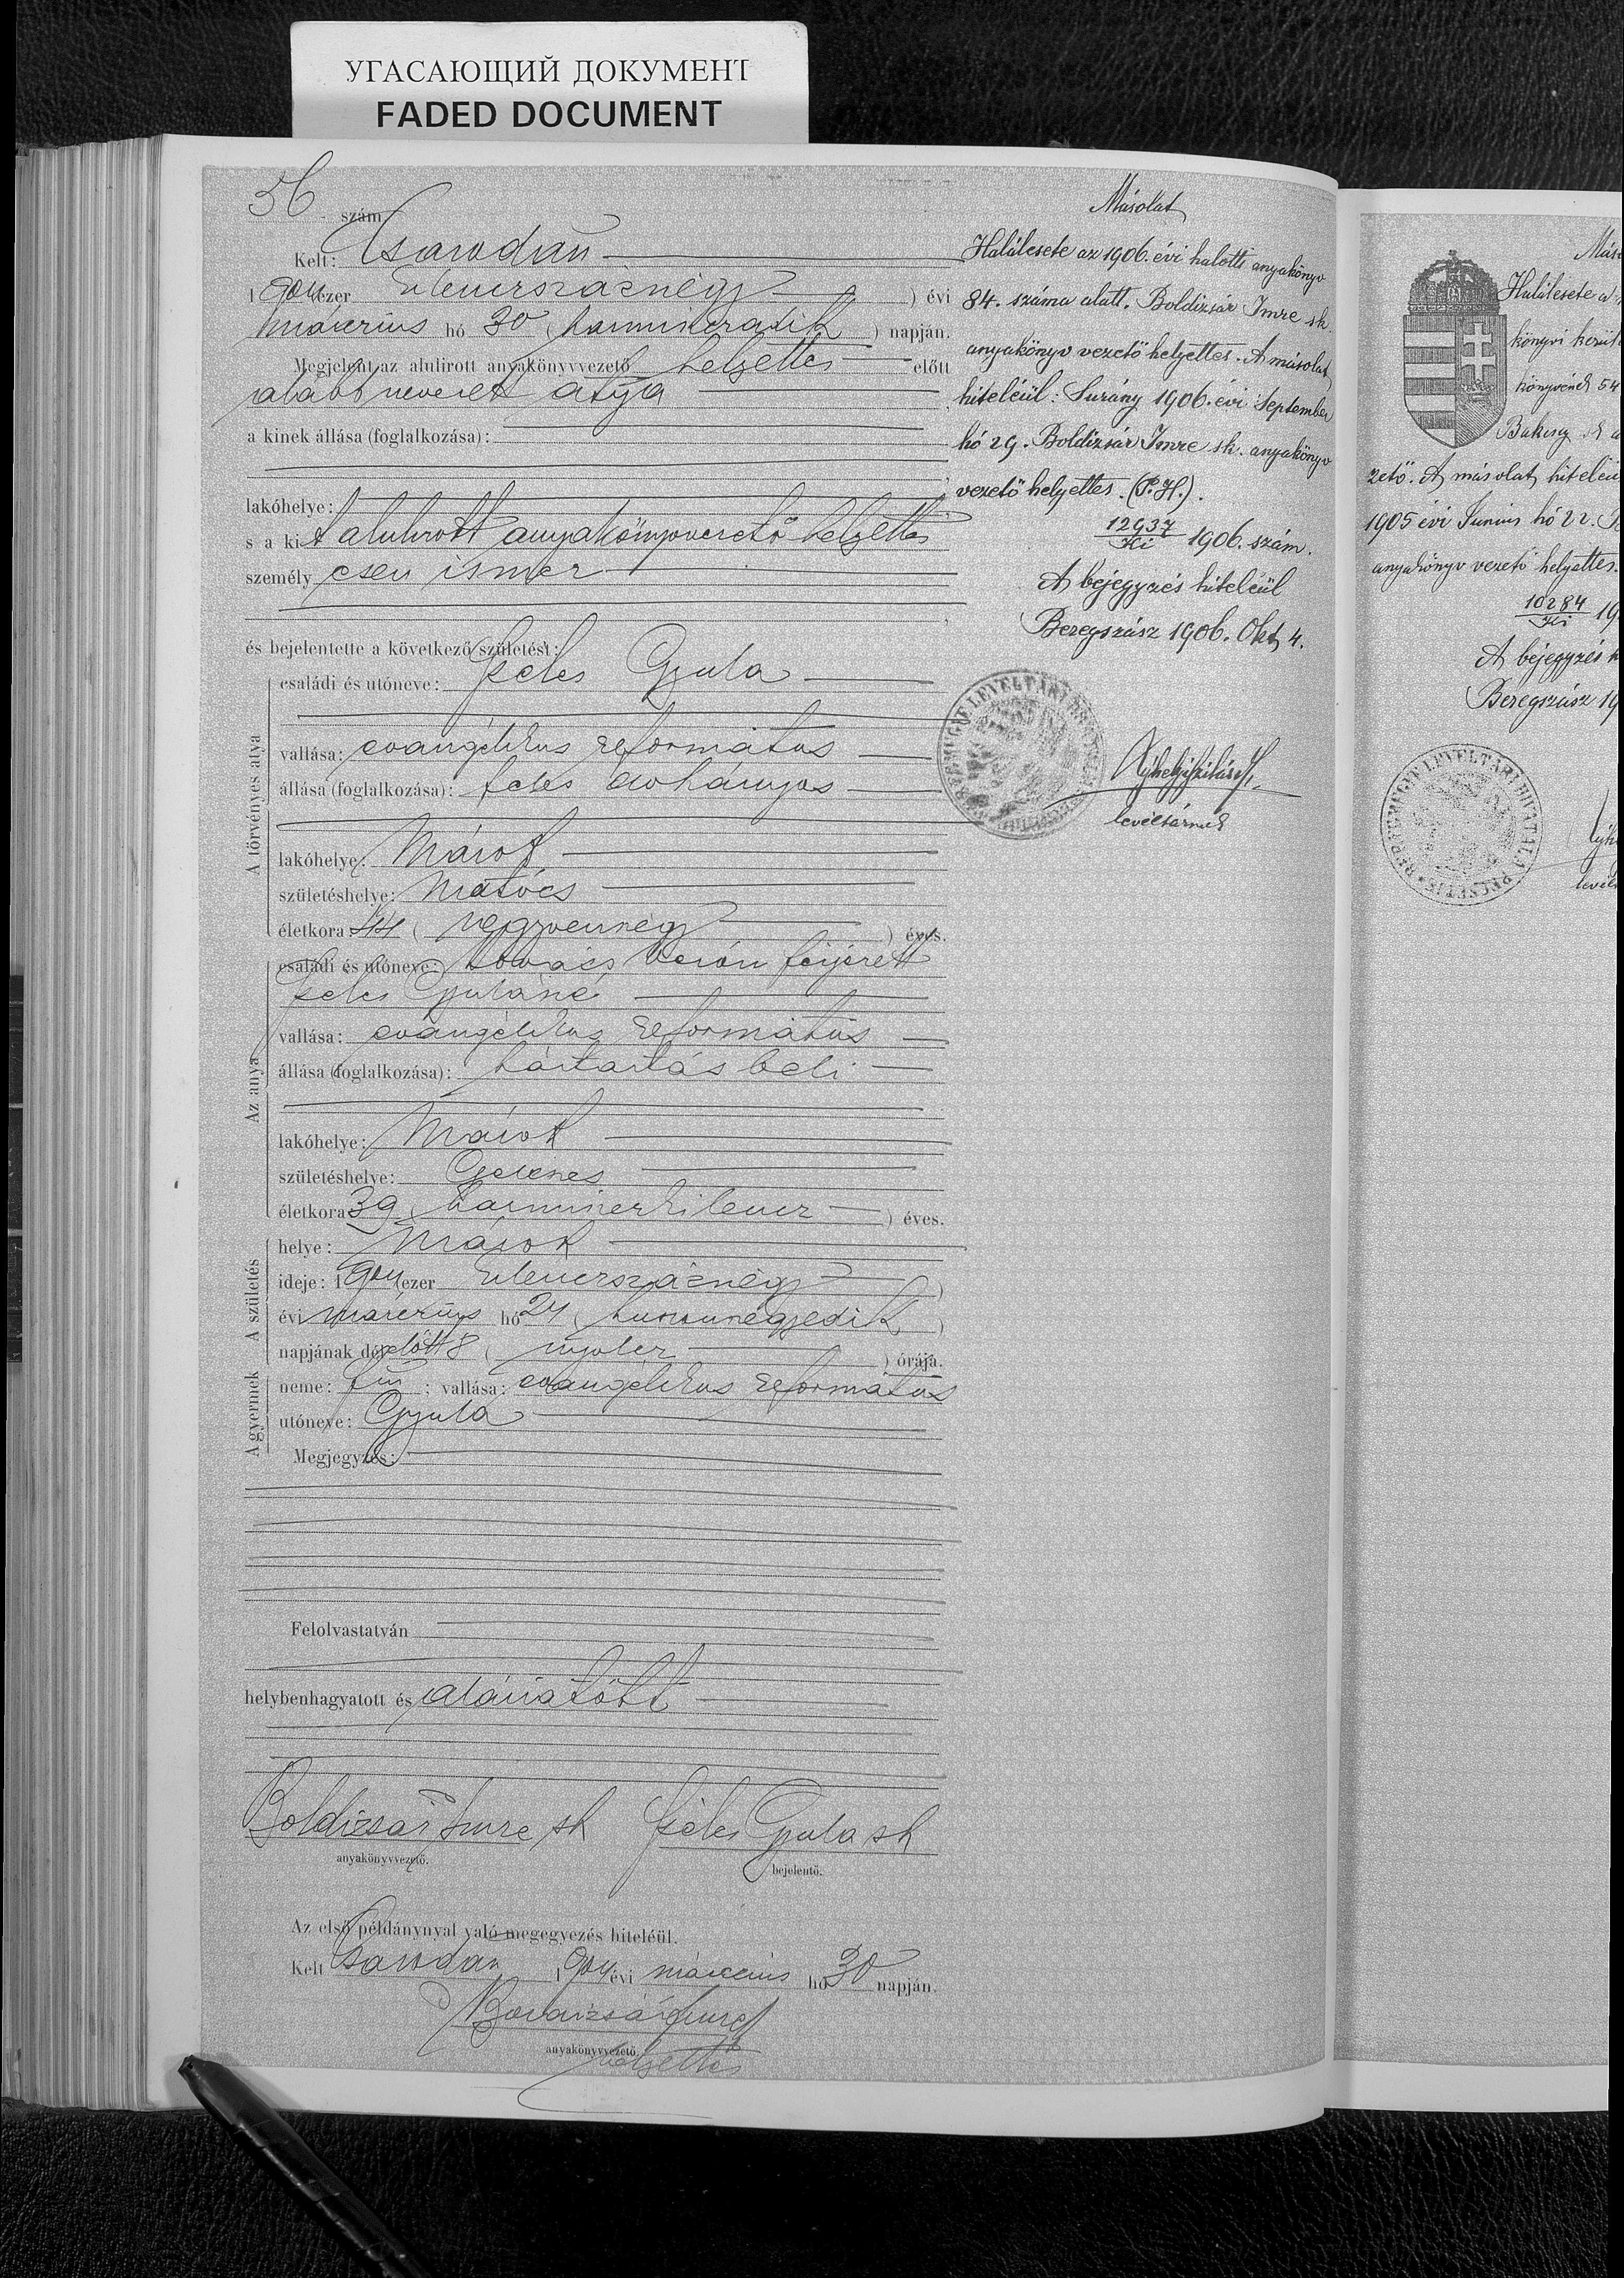 УГАСАЮЩИЙ ДОКУМЕНТ
FADED DOCUMENT
56 szám
Kelt: Csarodán
1904 ezer kilenczszáznégy ) évi
márczius hó 30 ( harminczadik ) napján.
Megjelent az alulirott anyakönyvvezető helyettes előtt
alább nevezett atya
a kinek állása (foglalkozása):
lakóhelye:
s a kit alulirott anyakönyvvezető helyettes
személyesen ismer
és bejelentette a következő születést:
A törvényes atya
családi és utóneve: Gyula
vallása: evangélikus református
állása (foglalkozása): feles dohányos
lakóhelye: Márok
születéshelye: Matócs
életkora 44 ( negyvennégy ) éves.
Az anya
családi és utóneve: Kovács férjezett
Gyuláné
vallása: evangélikus református
állása (foglalkozása): háztartás beli
lakóhelye: Márok
születéshelye: Gelénes
életkora 39 harminczkilencz ) éves.
A születés
helye: Márok
ideje: 1904 ezer kilenczszáznégy )
évi márczius hó 24 ( huszonnegyedik )
napjának délelőtt 8 ( nyolcz ) órája.
A gyermek
neme: fiú ; vallása: evangélikus református
utóneve: Gyula
Megjegyzés:
Felolvastatván
helybenhagyatott és aláíratott
Boldizsár Imre sk Gyula sk
anyakönyvvezető. bejelentő.
Az első példánynyal való megegyezés hiteléül.
Kelt Csarodán 1904 évi márczius hó 30 napján.
Boldizsár Imre
anyakönyvvezető.
helyettes
Másolat
Halálesete az 1906. évi halotti anyakönyv
84. száma alatt. Boldizsár Imre sk.
anyakönyv vezető helyettes. A másolat
hiteléül: Surány 1906. évi September
hó 29. Boldizsár Imre sk. anyakönyv
vezető helyettes. (P.H.).
12937/Ki 1906. szám.
A bejegyzés hiteléül
Beregszász 1906. Okt. 4.
BEREGMEGYE LEVÉLTÁRI HIVATALA
levéltárnok
Máso
Halálesete a
könyvi kerüle
könyvének 54
zető. A másolat hiteléü
1905 évi Junius hó 22.
anyakönyv vezető helyettes.
10284/Ki 19
A bejegyzés h
Beregszász 19
BEREGMEGYE LEVÉLTÁRI HIVATALA PECSÉTJE
levél